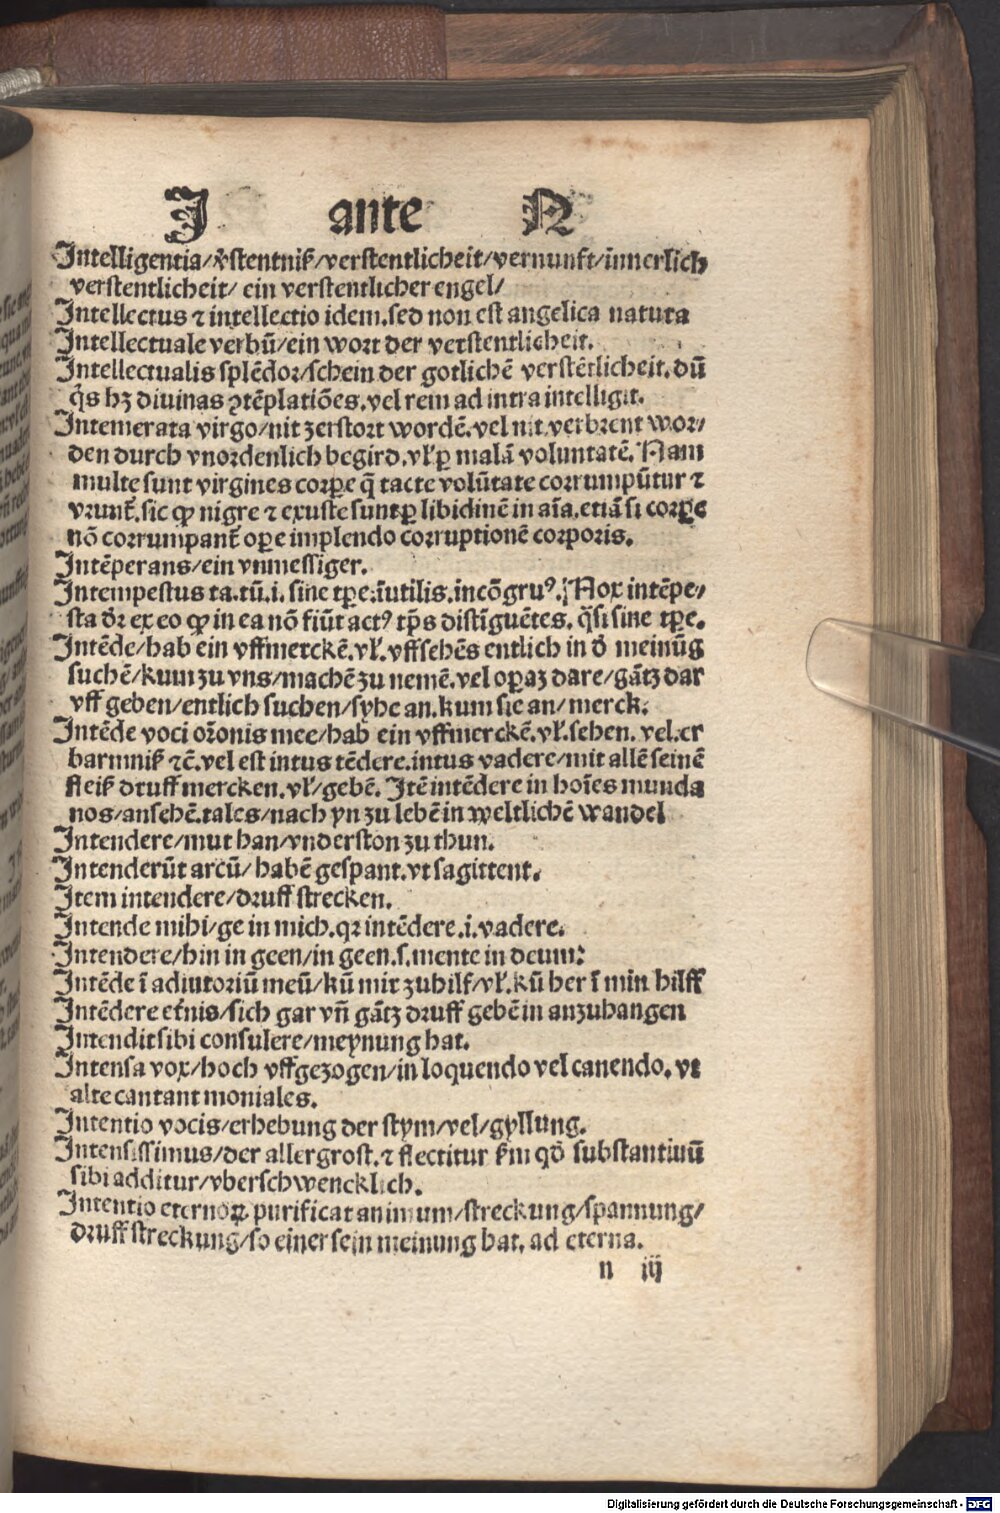 I ante N
Intelligentia/v̊stentniß/verstentlicheit/vernunft/innerlich
verstentlicheit/ ein verstentlicher engel/
Intellectus ⁊ intellectio idem.sed non est angelica natura
Intellectuale verbū/ein wort der verstentlicheit.
Intellectualis splēdor/schein der gotlichē verstētlicheit.dū
q̄s hꝫ diuinas ꝯtēplatiōes.vel rem ad intra intelligit.
Intemerata virgo/nit zerstort wordē.vel nit verbrent wor/
den durch vnordenlich begird.vl̕ ꝑ malā voluntatē. Nam
multe sunt virgines corꝑe q̄ tacte volūtate corrumpūtur ⁊
vrunt̄.sic ꝙ nigre ⁊ exuste sunt ꝑ libidinē in aīa.etiā si corꝑe
nō corrumpant̄ oꝑe implendo corruptionē corporis.
Intēperans/ein vnmessiger.
Intempestus ta.tū.i. sine tꝑe.īutilis.incōgruꝰ. Nox intēpe/
sta dr̄ ex eo ꝙ in ea nō fiūt actꝰ tp̄s distīguētes. q̄si sine tꝑe.
Intēde/hab ein vffmerckē.vl̕. vffsehēs entlich in d̄ meinūg
suchē/kum zu vns/machē zu nemē.vel oꝑaꝫ dare/gātz dar
vff geben/entlich suchen/syhe an.kum sie an/merck.
Intēde voci or̄onis mee/hab ein vffmerckē.vl̕.sehen. vel.er
barmniß ⁊c̄.vel est intus tēdere.intus vadere/mit allē seinē
fleiß druff mercken.vl̕/gebē. Itē intēdere in hoīes munda
nos/ansehē.tales/nach yn zu lebē in weltlichē wandel
Intendere/mut han/vnderston zu thun.
Intenderūt arcū/habē gespant.vt sagittent.
Item intendere/druff strecken.
Intende mihi/ge in mich.qꝛ intēdere.i.vadere.
Intendere/hin in geen/in geen.s.mente in deum:
Intēde ī adiutoriū meū/kū mir zu hilf/vl̕.kū her ī min hilff
Intēdere et̄nis/sich gar vn̄ gātz druff gebē in anzuhangen
Intendit sibi consulere/meynung hat.
Intensa vox/hoch vffgezogen/in loquendo vel canendo. vt
alte cantant moniales.
Intentio vocis/erhebung der stym/vel/gyllung.
Intensissimus/der allergrost.⁊ flectitur ẜm qd̄ substantiuū
sibi additur/vberschwencklich.
Intentio eternoꝝ purificat animum/streckung/spannung/
druff streckung/so einer sein meinung hat. ad eterna.
n iij
Digitalisierung gefördert durch die Deutsche Forschungsgemeinschaft - DFG